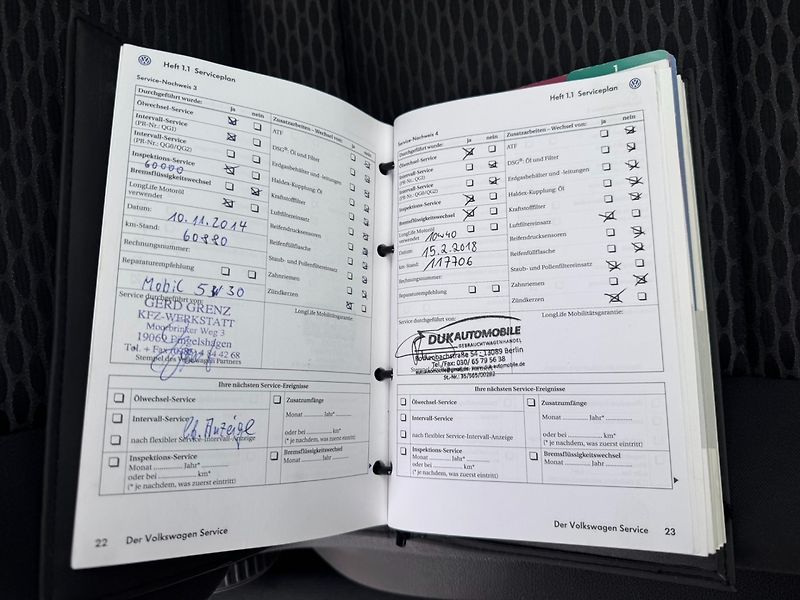 Heft 1.1 Serviceplan
Service-Nachweis 3
Durchgeführt wurde: ja nein
Ölwechsel-Service
Intervall-Service
(PR-Nr.: QG1)
Intervall-Service
(PR-Nr.: QG0/QG2)
Inspektions-Service
60000
Bremsflüssigkeitswechsel
LongLife Motoröl
verwendet
Datum: 10.11.2014
km-Stand: 60880
Rechnungsnummer:
Reparaturempfehlung
Mobil 5W30
Service durchgeführt von:
GERD GRENZ
KFZ-WERKSTATT
Moorbrinker Weg 3
19069 Pingelshagen
Tel. + Fax
Stempel des Volkswagen Partners
Zusatzarbeiten – Wechsel von: ja nein
ATF
DSG®: Öl und Filter
Erdgasbehälter und -leitungen
Haldex-Kupplung: Öl
Kraftstofffilter
Luftfiltereinsatz
Reifendrucksensoren
Reifenfüllflasche
Staub- und Pollenfiltereinsatz
Zahnriemen
Zündkerzen
LongLife Mobilitätsgarantie:
Ihre nächsten Service-Ereignisse
Ölwechsel-Service
Intervall-Service
nach flexibler Service-Intervall-Anzeige
Anzeige
Inspektions-Service
Monat Jahr*
oder bei km*
(* je nachdem, was zuerst eintritt)
Zusatzumfänge
Monat Jahr*
oder bei km*
(* je nachdem, was zuerst eintritt)
Bremsflüssigkeitswechsel
Monat Jahr
22 Der Volkswagen Service
1
Heft 1.1 Serviceplan
Service-Nachweis 4
Durchgeführt wurde: ja nein
Ölwechsel-Service
Intervall-Service
(PR-Nr.: QG1)
Intervall-Service
(PR-Nr.: QG0/QG2)
Inspektions-Service
Bremsflüssigkeitswechsel
LongLife Motoröl
verwendet 10w40
Datum: 15.2.2018
km-Stand: 117706
Rechnungsnummer:
Reparaturempfehlung
Service durchgeführt von:
DUKAUTOMOBILE
GEBRAUCHTWAGENHANDEL
54 - 13089 Berlin
Tel./Fax: 030/ 65 79 56 38
St.-Nr.: 35/565/00282
Zusatzarbeiten – Wechsel von: ja nein
ATF
DSG®: Öl und Filter
Erdgasbehälter und -leitungen
Haldex-Kupplung: Öl
Kraftstofffilter
Luftfiltereinsatz
Reifendrucksensoren
Reifenfüllflasche
Staub- und Pollenfiltereinsatz
Zahnriemen
Zündkerzen
LongLife Mobilitätsgarantie:
Ihre nächsten Service-Ereignisse
Ölwechsel-Service
Intervall-Service
nach flexibler Service-Intervall-Anzeige
Inspektions-Service
Monat Jahr*
oder bei km*
(* je nachdem, was zuerst eintritt)
Zusatzumfänge
Monat Jahr*
oder bei km*
(* je nachdem, was zuerst eintritt)
Bremsflüssigkeitswechsel
Monat Jahr
Der Volkswagen Service 23